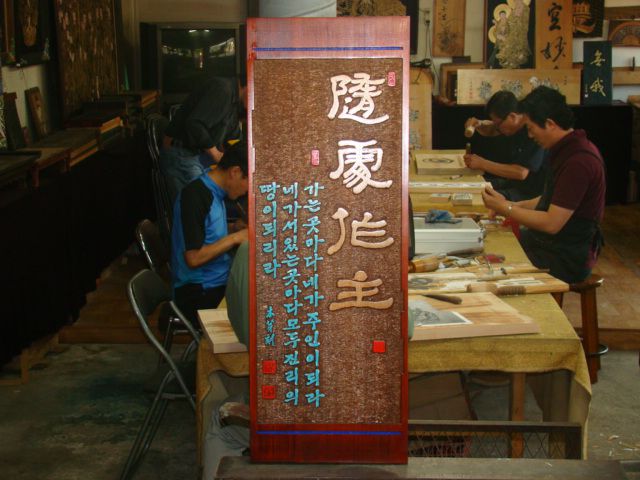 隨處作主
가는곳마다네가주인이되라
네가서있는곳마다모두진리의
땅이되리라
無我